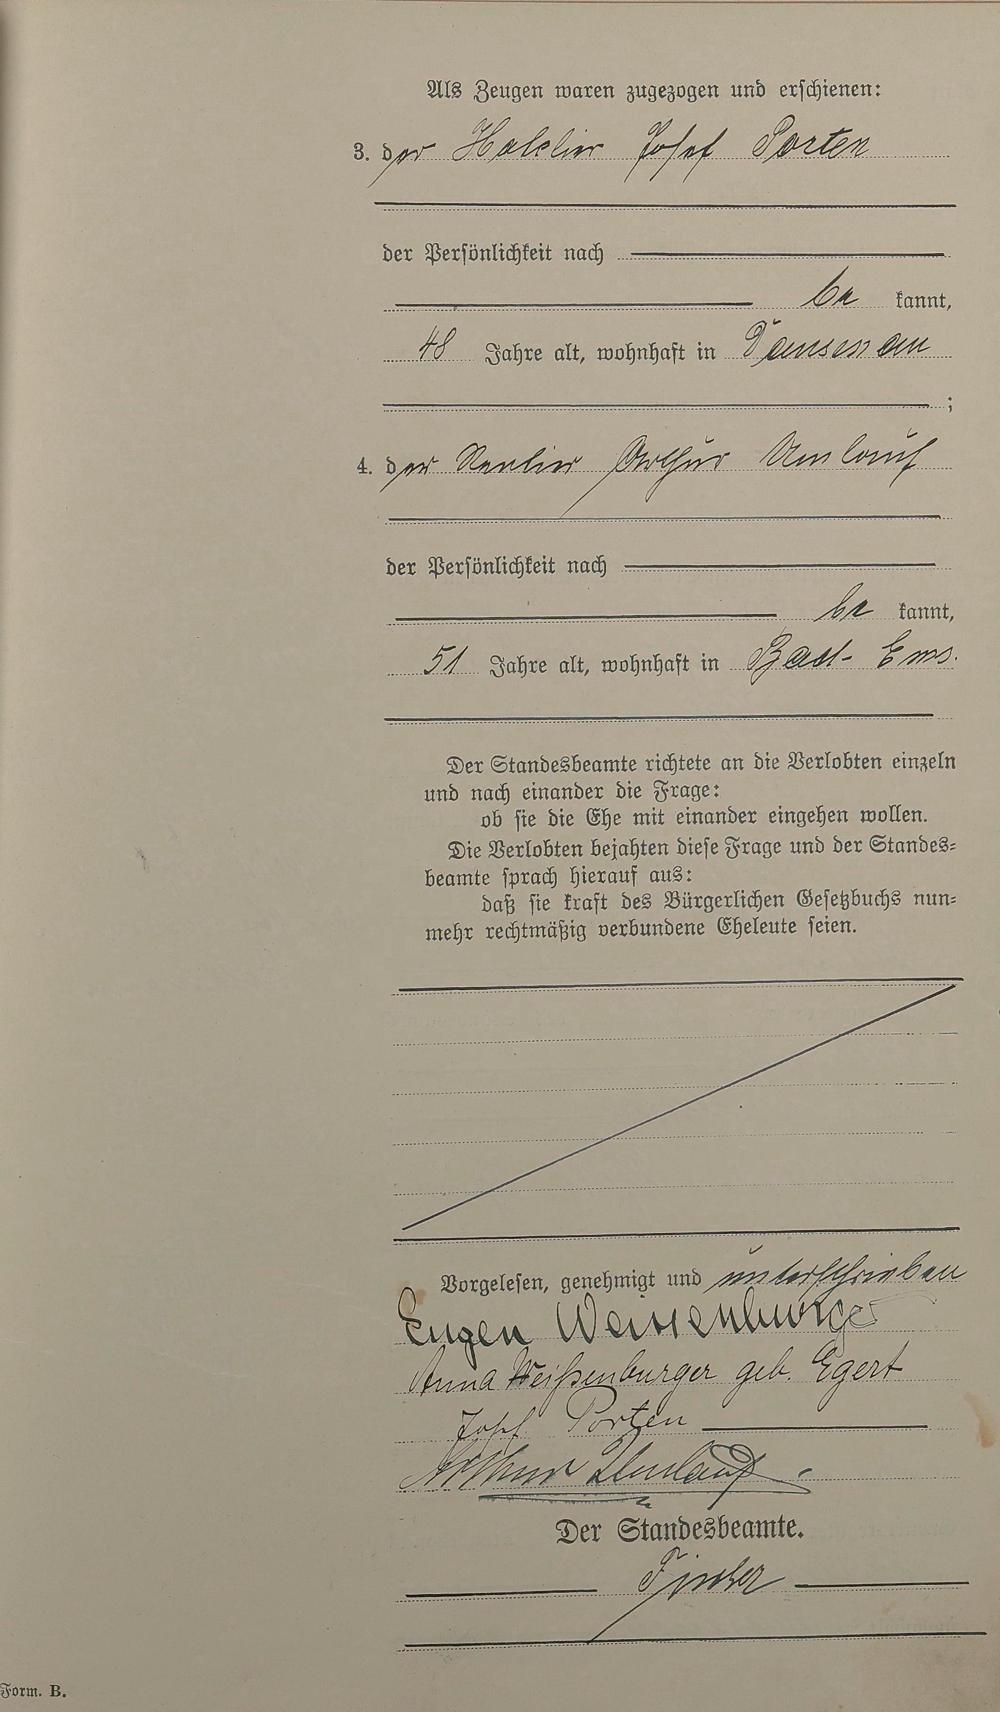 Als Zeugen waren zugezogen und erschienen:
3. der Hotelier Josef Porten
der Persönlichkeit nach
be kannt,
48 Jahre alt, wohnhaft in Dausenau
;
4. der Rentier Arthur Umlauf
der Persönlichkeit nach
be kannt,
51 Jahre alt, wohnhaft in Bad-Ems.
Der Standesbeamte richtete an die Verlobten einzeln
und nach einander die Frage:
ob sie die Ehe mit einander eingehen wollen.
Die Verlobten bejahten diese Frage und der Standes-
beamte sprach hierauf aus:
daß sie kraft des Bürgerlichen Gesetzbuchs nun-
mehr rechtmäßig verbundene Eheleute seien.
Vorgelesen, genehmigt und unterschrieben
Eugen Weissenburger
Anna Weißenburger geb. Egert
Josef Porten
Arthur Umlauf.
Der Standesbeamte.
Fischer
Form. B.